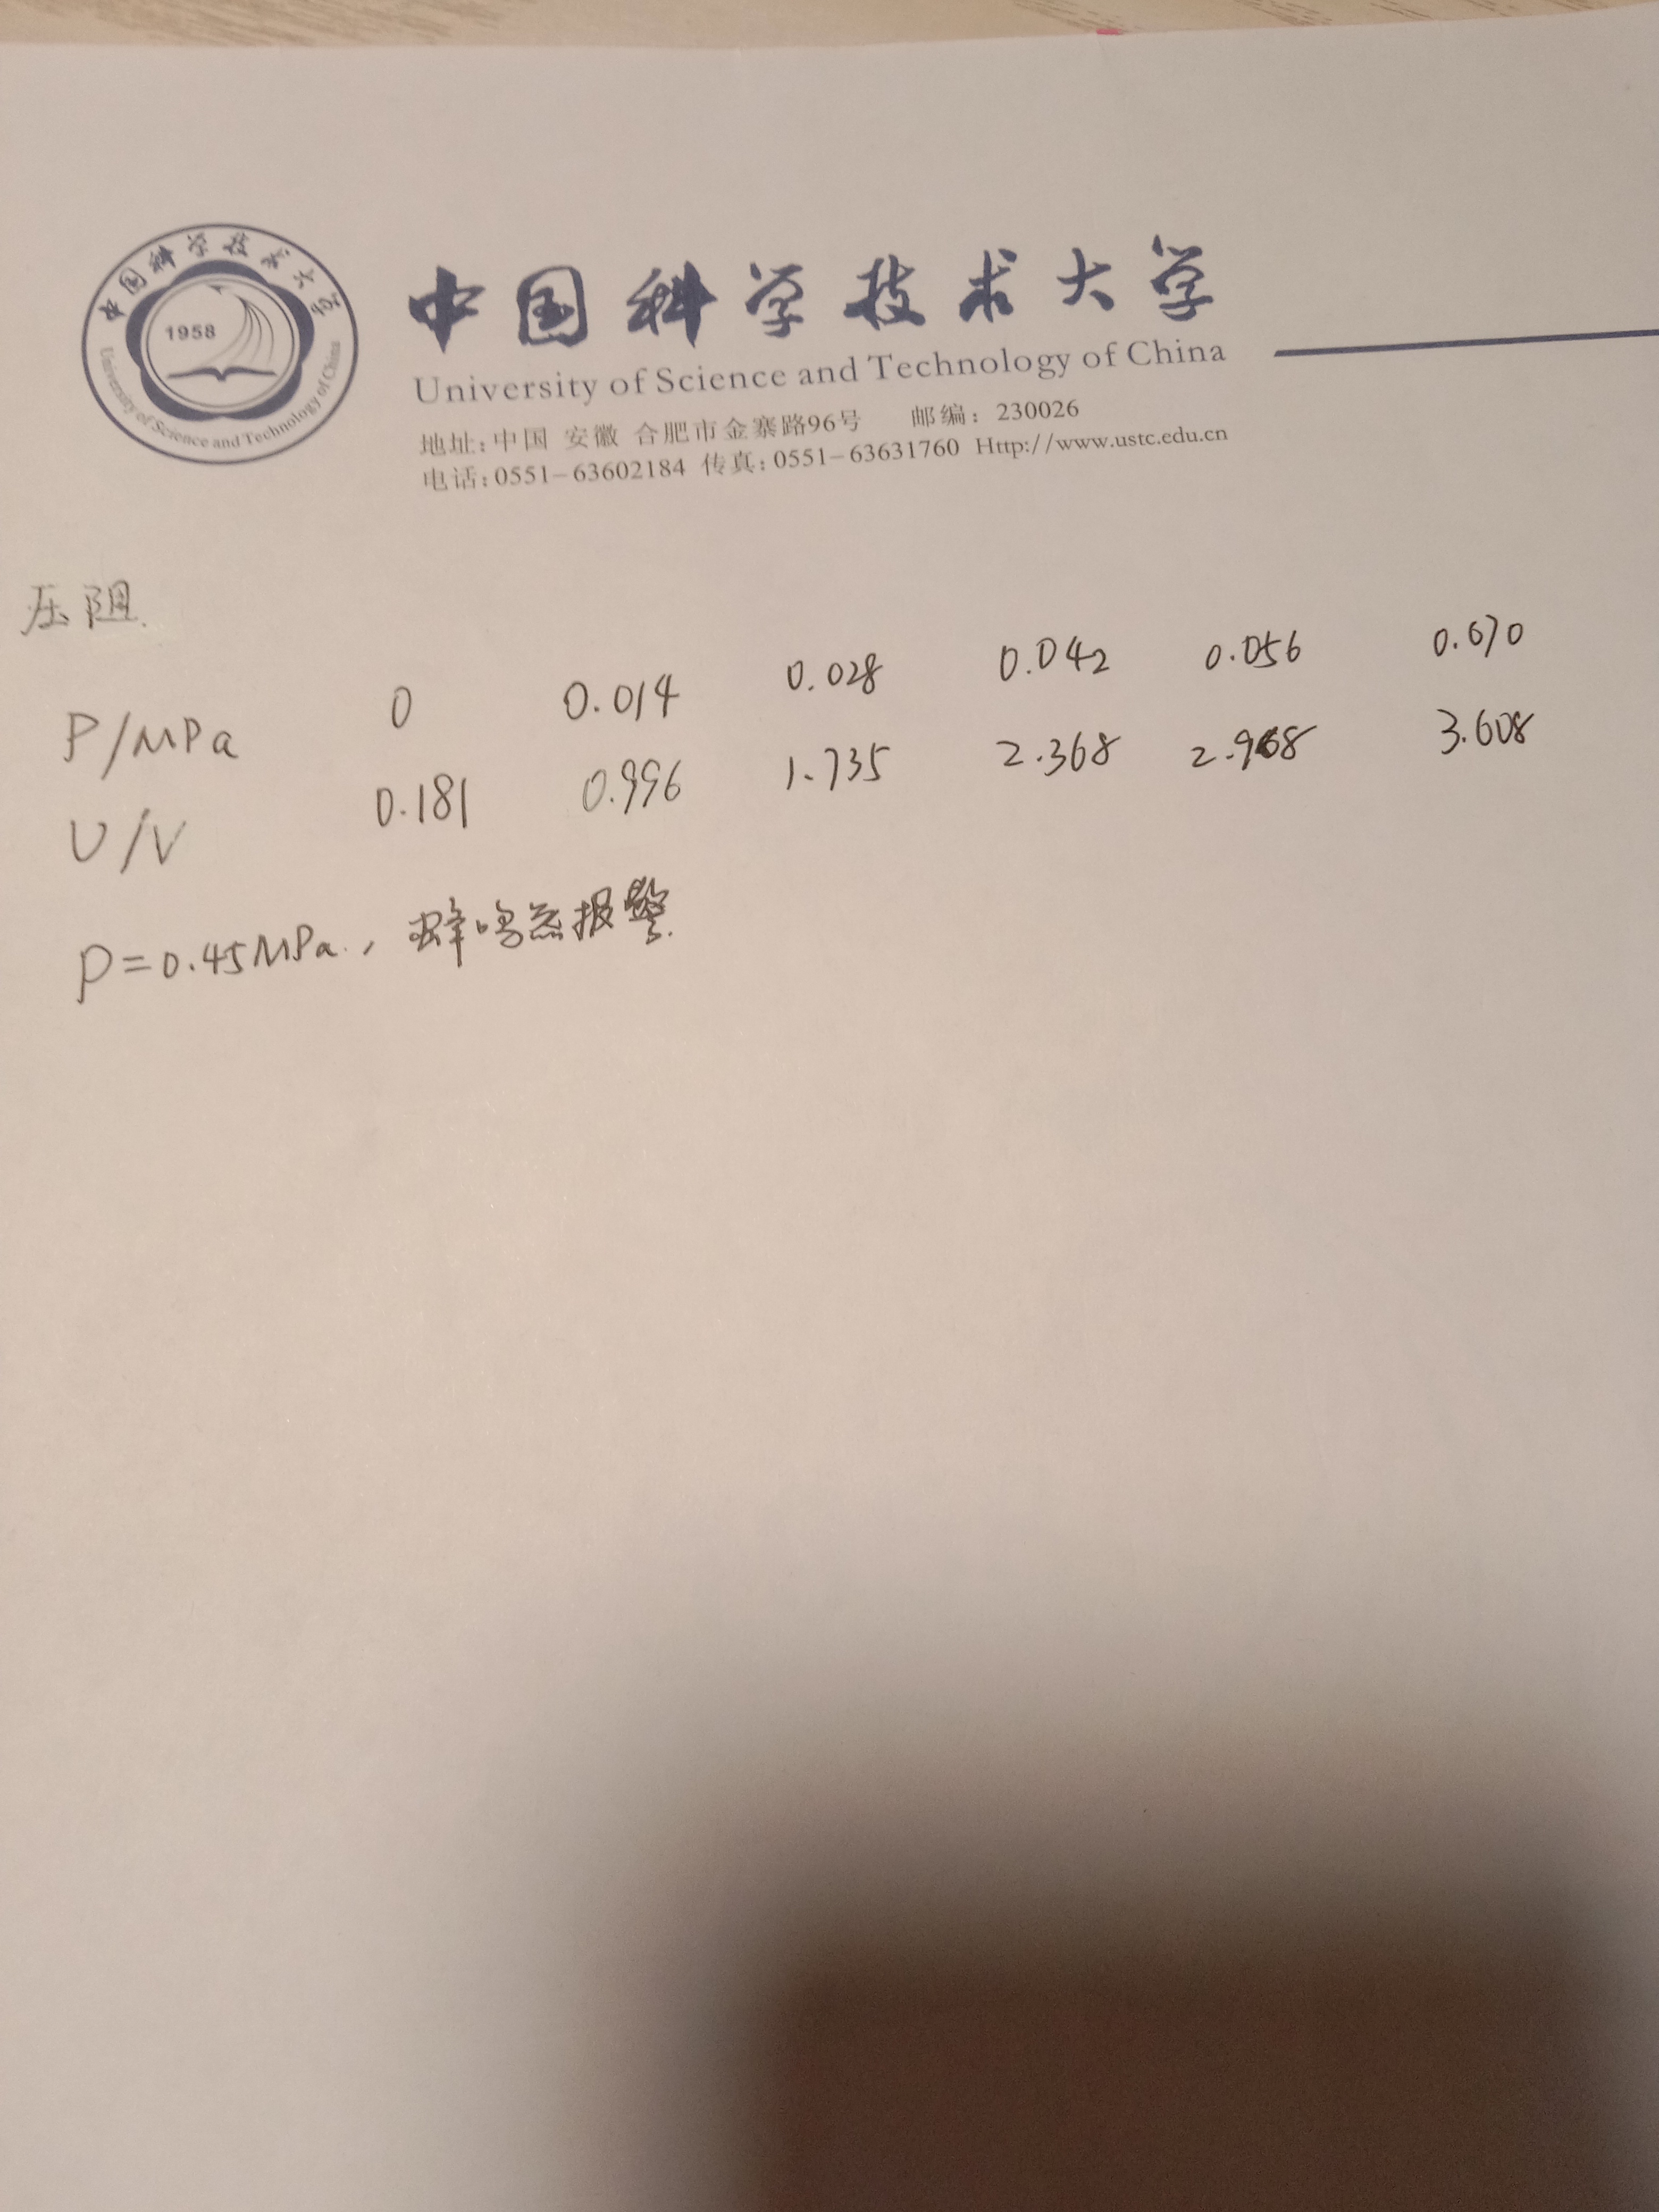 中国科学技术大学
1958
University of Science and Technology of China
中国科学技术大学
University of Science and Technology of China
地址:中国 安徽 合肥市金寨路96号 邮编: 230026
电话:0551-63602184 传真:0551-63631760 Http://www.ustc.edu.cn
压阻.
P/MPa 0 0.014 0.028 0.042 0.056 0.070
U/V 0.181 0.996 1.735 2.368 2.968 3.608
P=0.45MPa., 蜂鸣器报警.